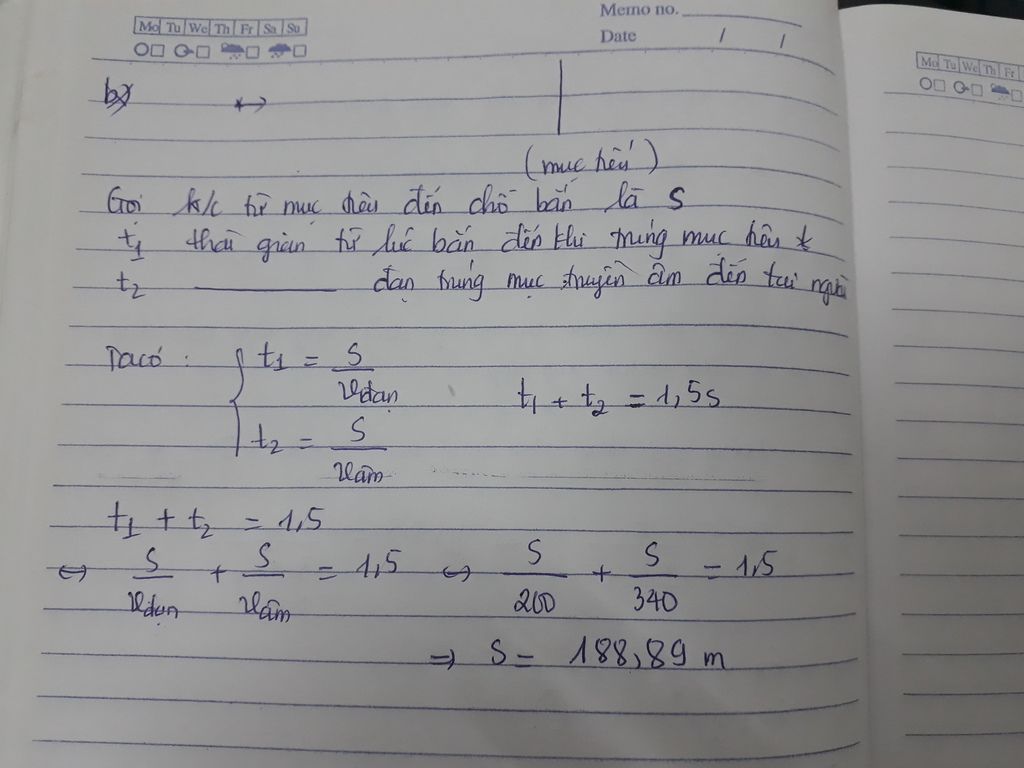 Mo Tu We Th Fr Sa Su
Memo no.
Date / /
Mo Tu We Th
b)
(mục tiêu)
Gọi k/c từ mục tiêu đến chỗ bắn là S
t₁ thời gian từ lúc bắn đến khi trúng mục tiêu
t₂ ———— đạn trúng mục truyền âm đến tai người
Ta có : { t₁ = S / v đạn
t₁ + t₂ = 1,5s
t₂ = S / v âm
t₁ + t₂ = 1,5
⇔ S / v đạn + S / v âm = 1,5 ⇔ S / 200 + S / 340 = 1,5
⇒ S = 188,89 m